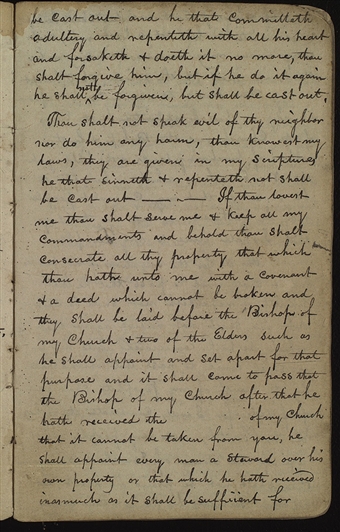 be cast out and he that Committeth
adultery and repenteth with all his heart
and forsaketh & doeth it no more, thou
shalt forgive him, but if he do it again
he shall not be forgiven, but shall be cast out.
Thou shalt not speak evil of thy neighbor
nor do him any harm, thou knowest my
laws, they are given in my Scriptures
he that sinneth & repenteth not shall
be cast out — — If thou lovest
me thou shalt serve me & keep all my
commandments and behold thou shalt
consecrate all thy property that which
thou hath unto me with a covenant
& a deed which cannot be broken and
they shall be laid before the Bishop of
my Church & two of the Elders such as
he shall appoint and set apart for that
purpose and it shall come to pass that
the Bishop of my Church after that he
hath received the of my Church
that it cannot be taken from you, he
shall appoint every man a Steward over his
own property or that which he hath received
inasmuch as it shall be sufficient for